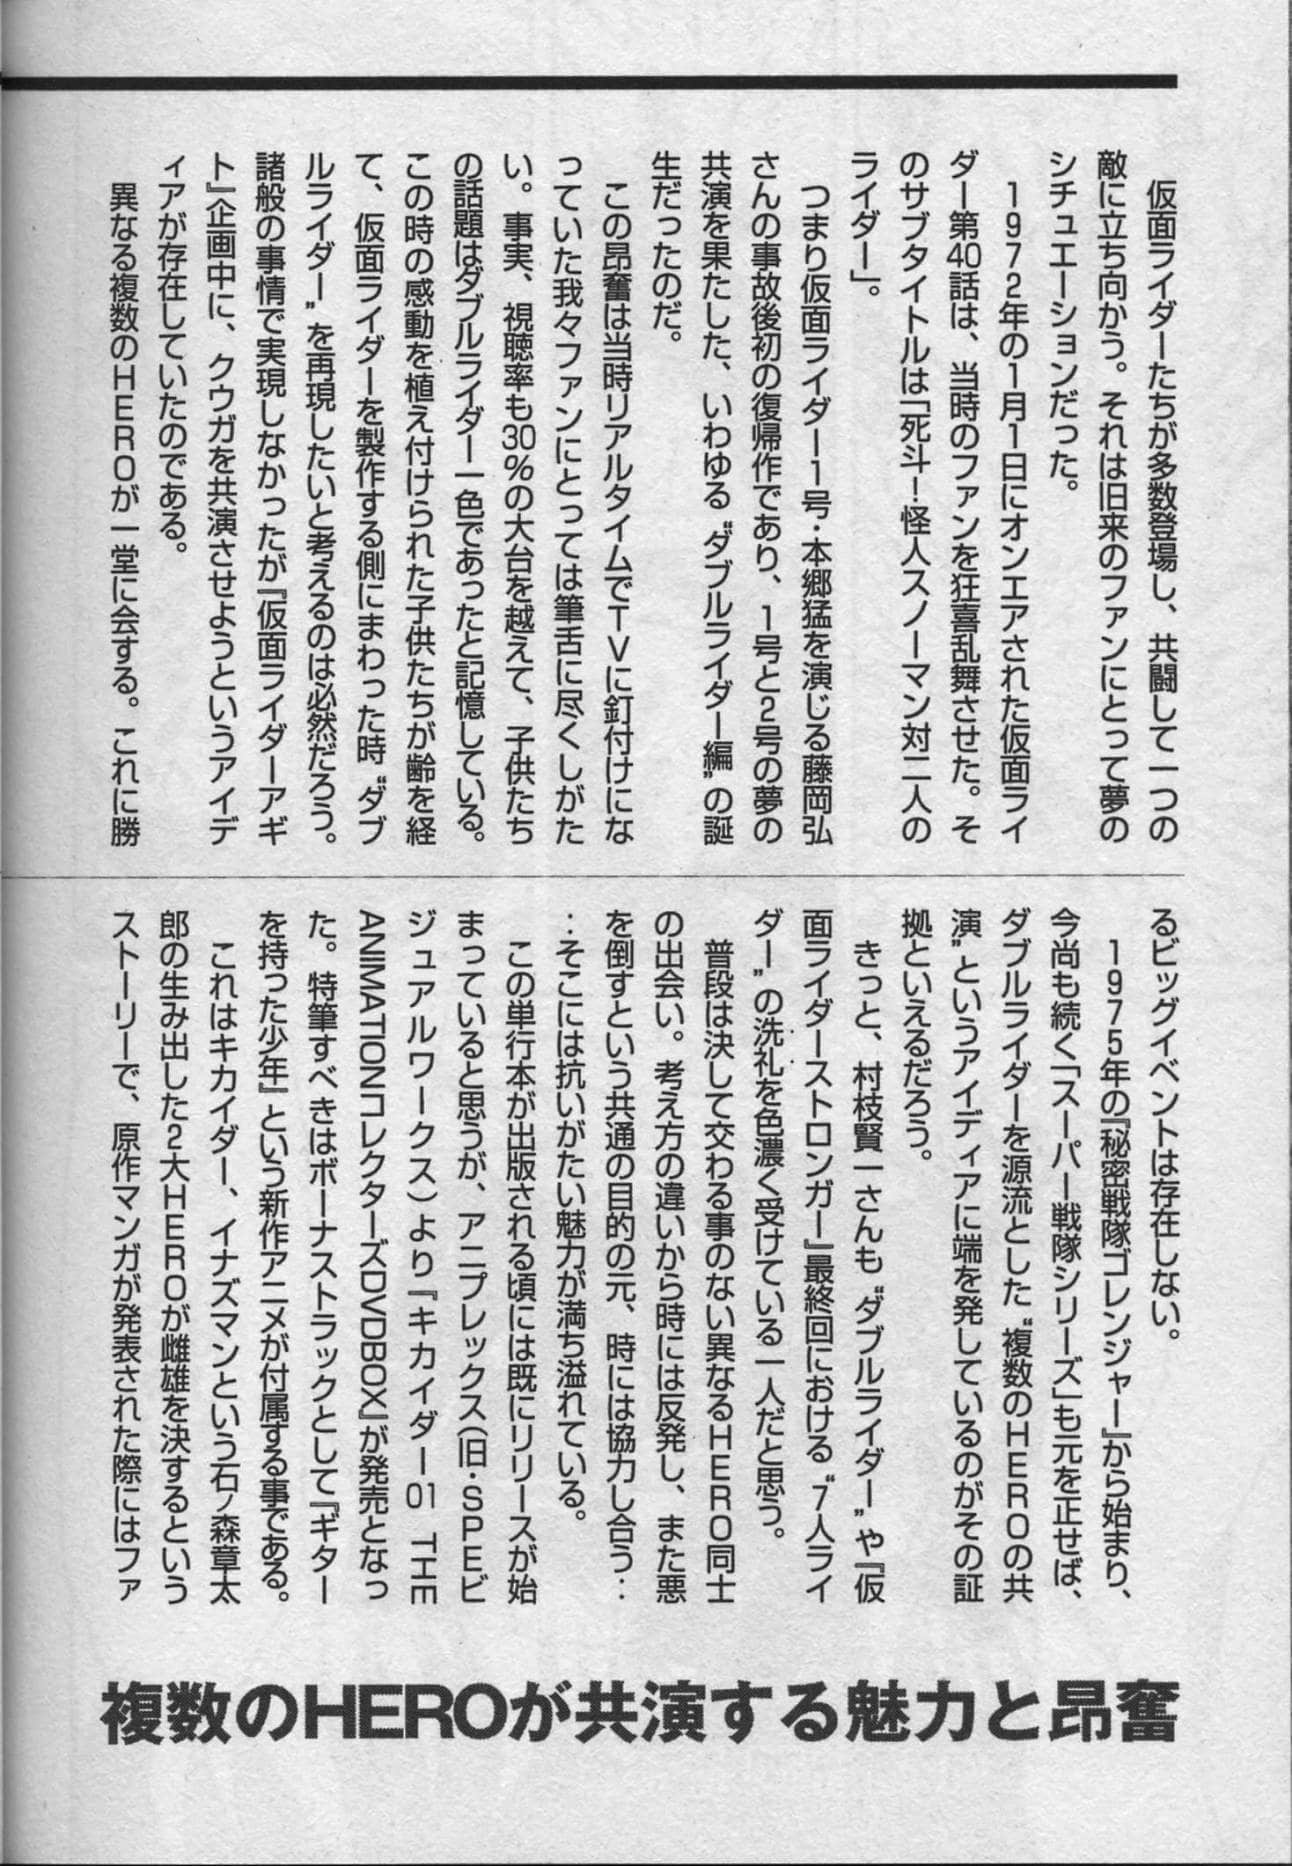 仮面ライダーたちが多数登場し、共闘して一つの
敵に立ち向かう。それは旧来のファンにとって夢の
シチュエーションだった。
1972年の1月1日にオンエアされた仮面ライ
ダー第40話は、当時のファンを狂喜乱舞させた。そ
のサブタイトルは「死斗！怪人スノーマン対二人の
ライダー」。
つまり仮面ライダー1号・本郷猛を演じる藤岡弘
さんの事故後初の復帰作であり、1号と2号の夢の
共演を果たした、いわゆる〝ダブルライダー編〟の誕
生だったのだ。
この昂奮は当時リアルタイムでTVに釘付けにな
っていた我々ファンにとっては筆舌に尽くしがた
い。事実、視聴率も30％の大台を越えて、子供たち
の話題はダブルライダー一色であったと記憶している。
この時の感動を植え付けられた子供たちが齢を経
て、仮面ライダーを製作する側にまわった時〝ダブ
ルライダー〟を再現したいと考えるのは必然だろう。
諸般の事情で実現しなかったが『仮面ライダーアギ
ト』企画中に、クウガを共演させようというアイデ
ィアが存在していたのである。
異なる複数のHEROが一堂に会する。これに勝
るビッグイベントは存在しない。
1975年の『秘密戦隊ゴレンジャー』から始まり、
今尚も続く「スーパー戦隊シリーズ」も元を正せば、
ダブルライダーを源流とした〝複数のHEROの共
演〟というアイディアに端を発しているのがその証
拠といえるだろう。
きっと、村枝賢一さんも〝ダブルライダー〟や『仮
面ライダーストロンガー』最終回における〝7人ライ
ダー〟の洗礼を色濃く受けている一人だと思う。
普段は決して交わる事のない異なるHERO同士
の出会い。考え方の違いから時には反発し、また悪
を倒すという共通の目的の元、時には協力し合う‥
‥そこには抗いがたい魅力が満ち溢れている。
この単行本が出版される頃には既にリリースが始
まっていると思うが、アニプレックス（旧・SPEビ
ジュアルワークス）より『キカイダー01 THE
ANIMATIONコレクターズDVDBOX』が発売となっ
た。特筆すべきはボーナストラックとして『ギター
を持った少年』という新作アニメが付属する事である。
これはキカイダー、イナズマンという石ノ森章太
郎の生み出した2大HEROが雌雄を決するという
ストーリーで、原作マンガが発表された際にはファ
複数のHEROが共演する魅力と昂奮